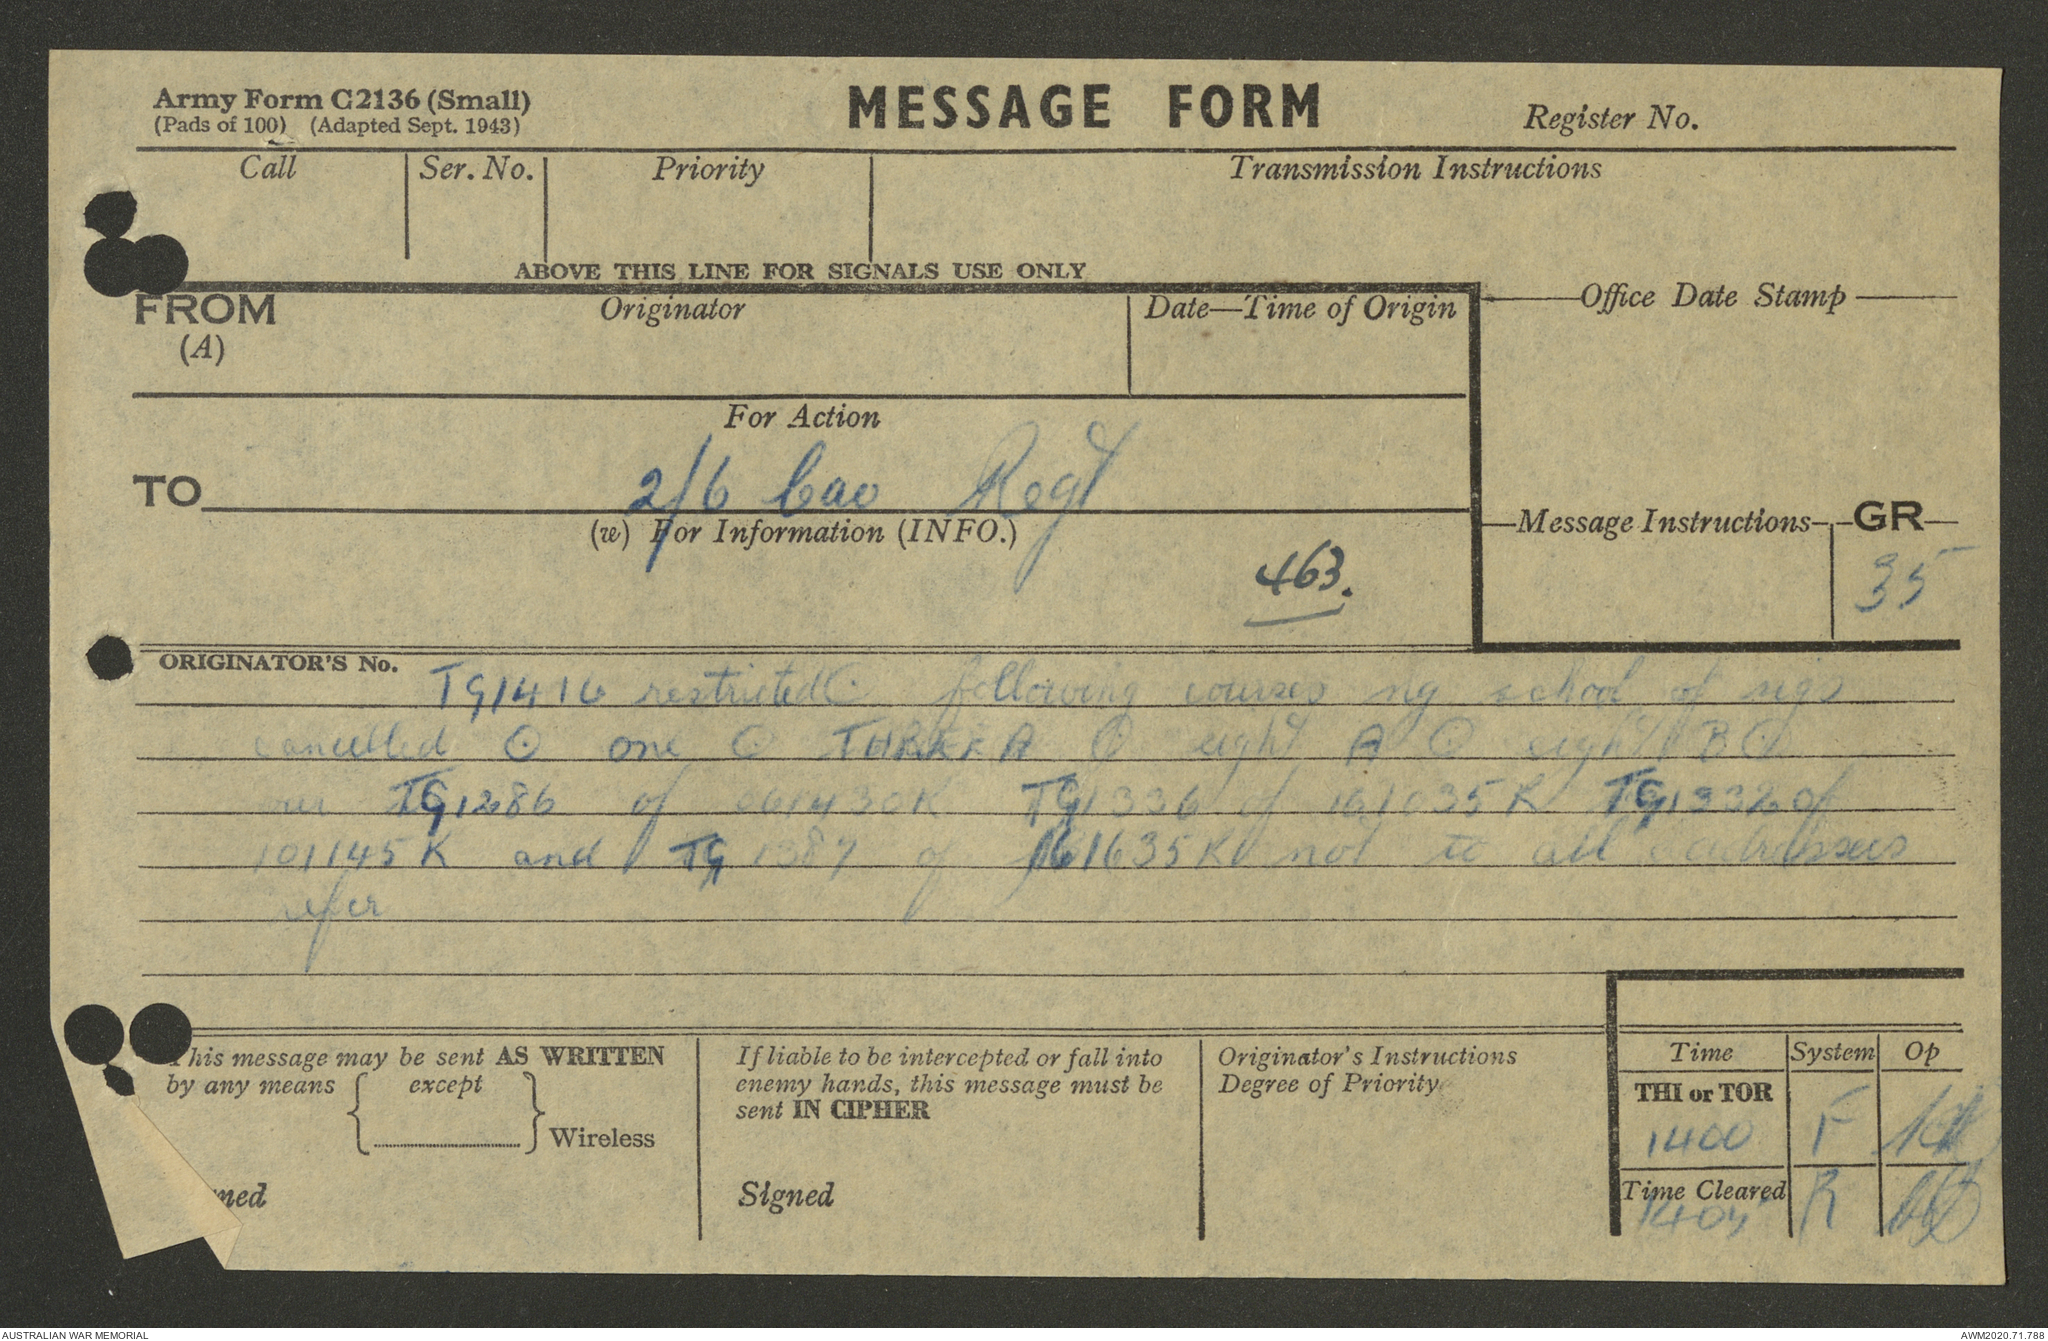 Army Form C2136 (Small)
(Pads of 100) (Adapted Sept. 1943)
MESSAGE FORM
Register No.
Call
Ser. No.
Priority
Transmission Instructions
ABOVE THIS LINE FOR SIGNALS USE ONLY
FROM
(A)
Originator
Date—Time of Origin
Office Date Stamp
For Action
TO
2/6 Cav Regt
(w) For Information (INFO.)
463.
Message Instructions
GR
35
ORIGINATOR'S No.
TG1416 restricted ⊙ following courses school of sigs
cancelled ⊙ one ⊙ THREE A ⊙ eight A ⊙ eight B ⊙
our TG1286 of 061430K TG1336 of 101035K TG1332 of
101145K and TG1387 of 161635K not to all addressees
refer
This message may be sent AS WRITTEN
by any means except
Wireless
ned
If liable to be intercepted or fall into
enemy hands, this message must be
sent IN CIPHER
Signed
Originator's Instructions
Degree of Priority
Time System Op
THI or TOR
1400 F
Time Cleared
1405 R
AUSTRALIAN WAR MEMORIAL
AWM2020.71.788